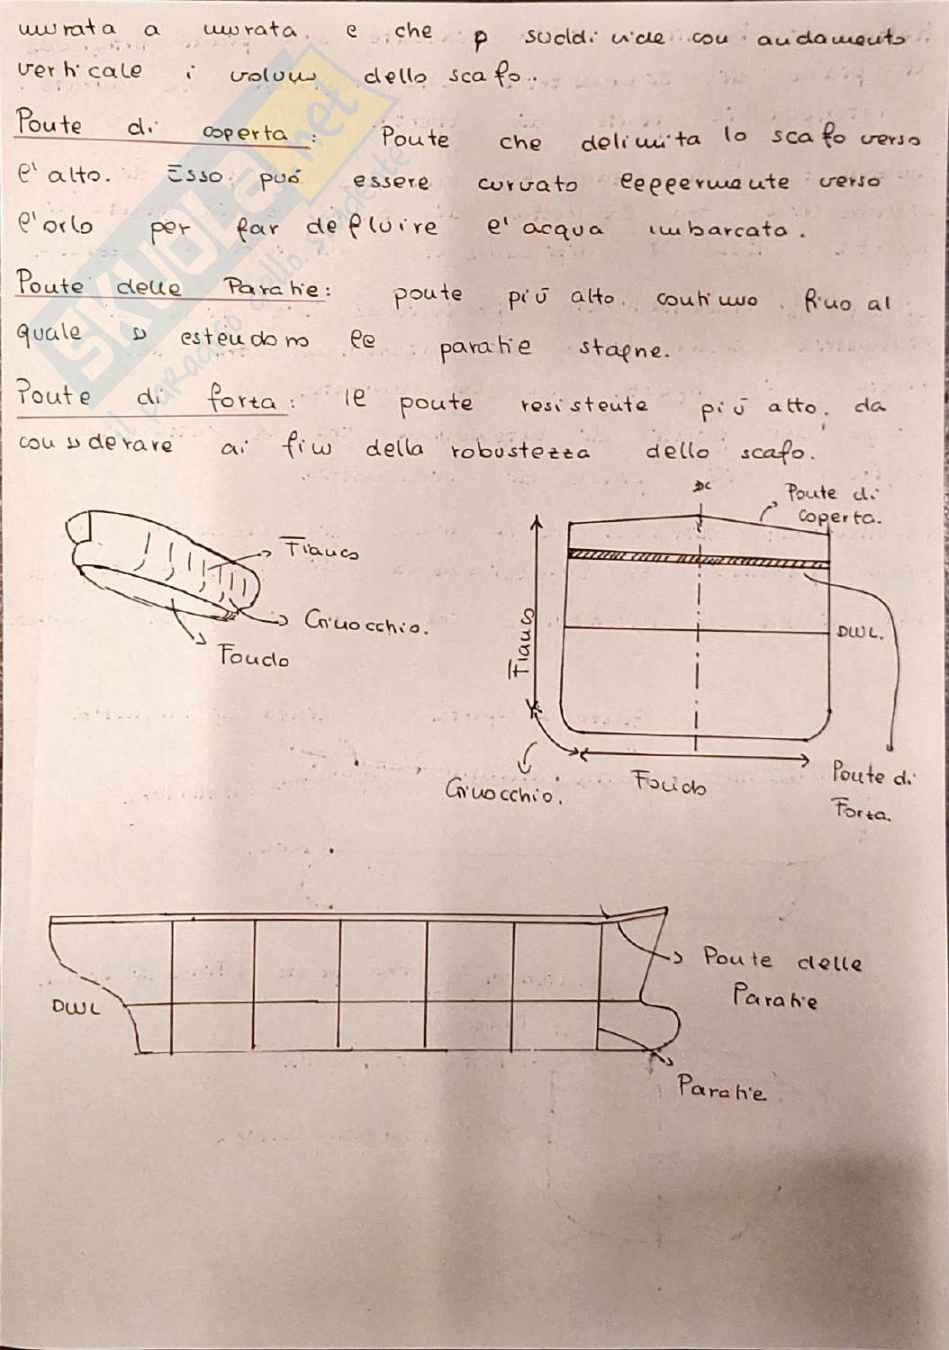 murata a murata e che suddivide con andamento
verticale i volumi dello scafo.
Ponte di coperta: Ponte che delimita lo scafo verso
l'alto. Esso può essere curvato leggermente verso
l'orlo per far defluire l'acqua imbarcata.
Ponte delle Paratie: ponte più alto continuo fino al
quale si estendono le paratie stagne.
Ponte di forza: Il ponte resistente più alto, da
considerare ai fini della robustezza dello scafo.
Fianco
Ginocchio.
Fondo
Ponte di
coperta.
Fianco
DWL.
Ginocchio.
Fondo
Ponte di
Forza.
DWL
Ponte delle
Paratie
Paratie
SKUOLA.net
il paradiso dello studente